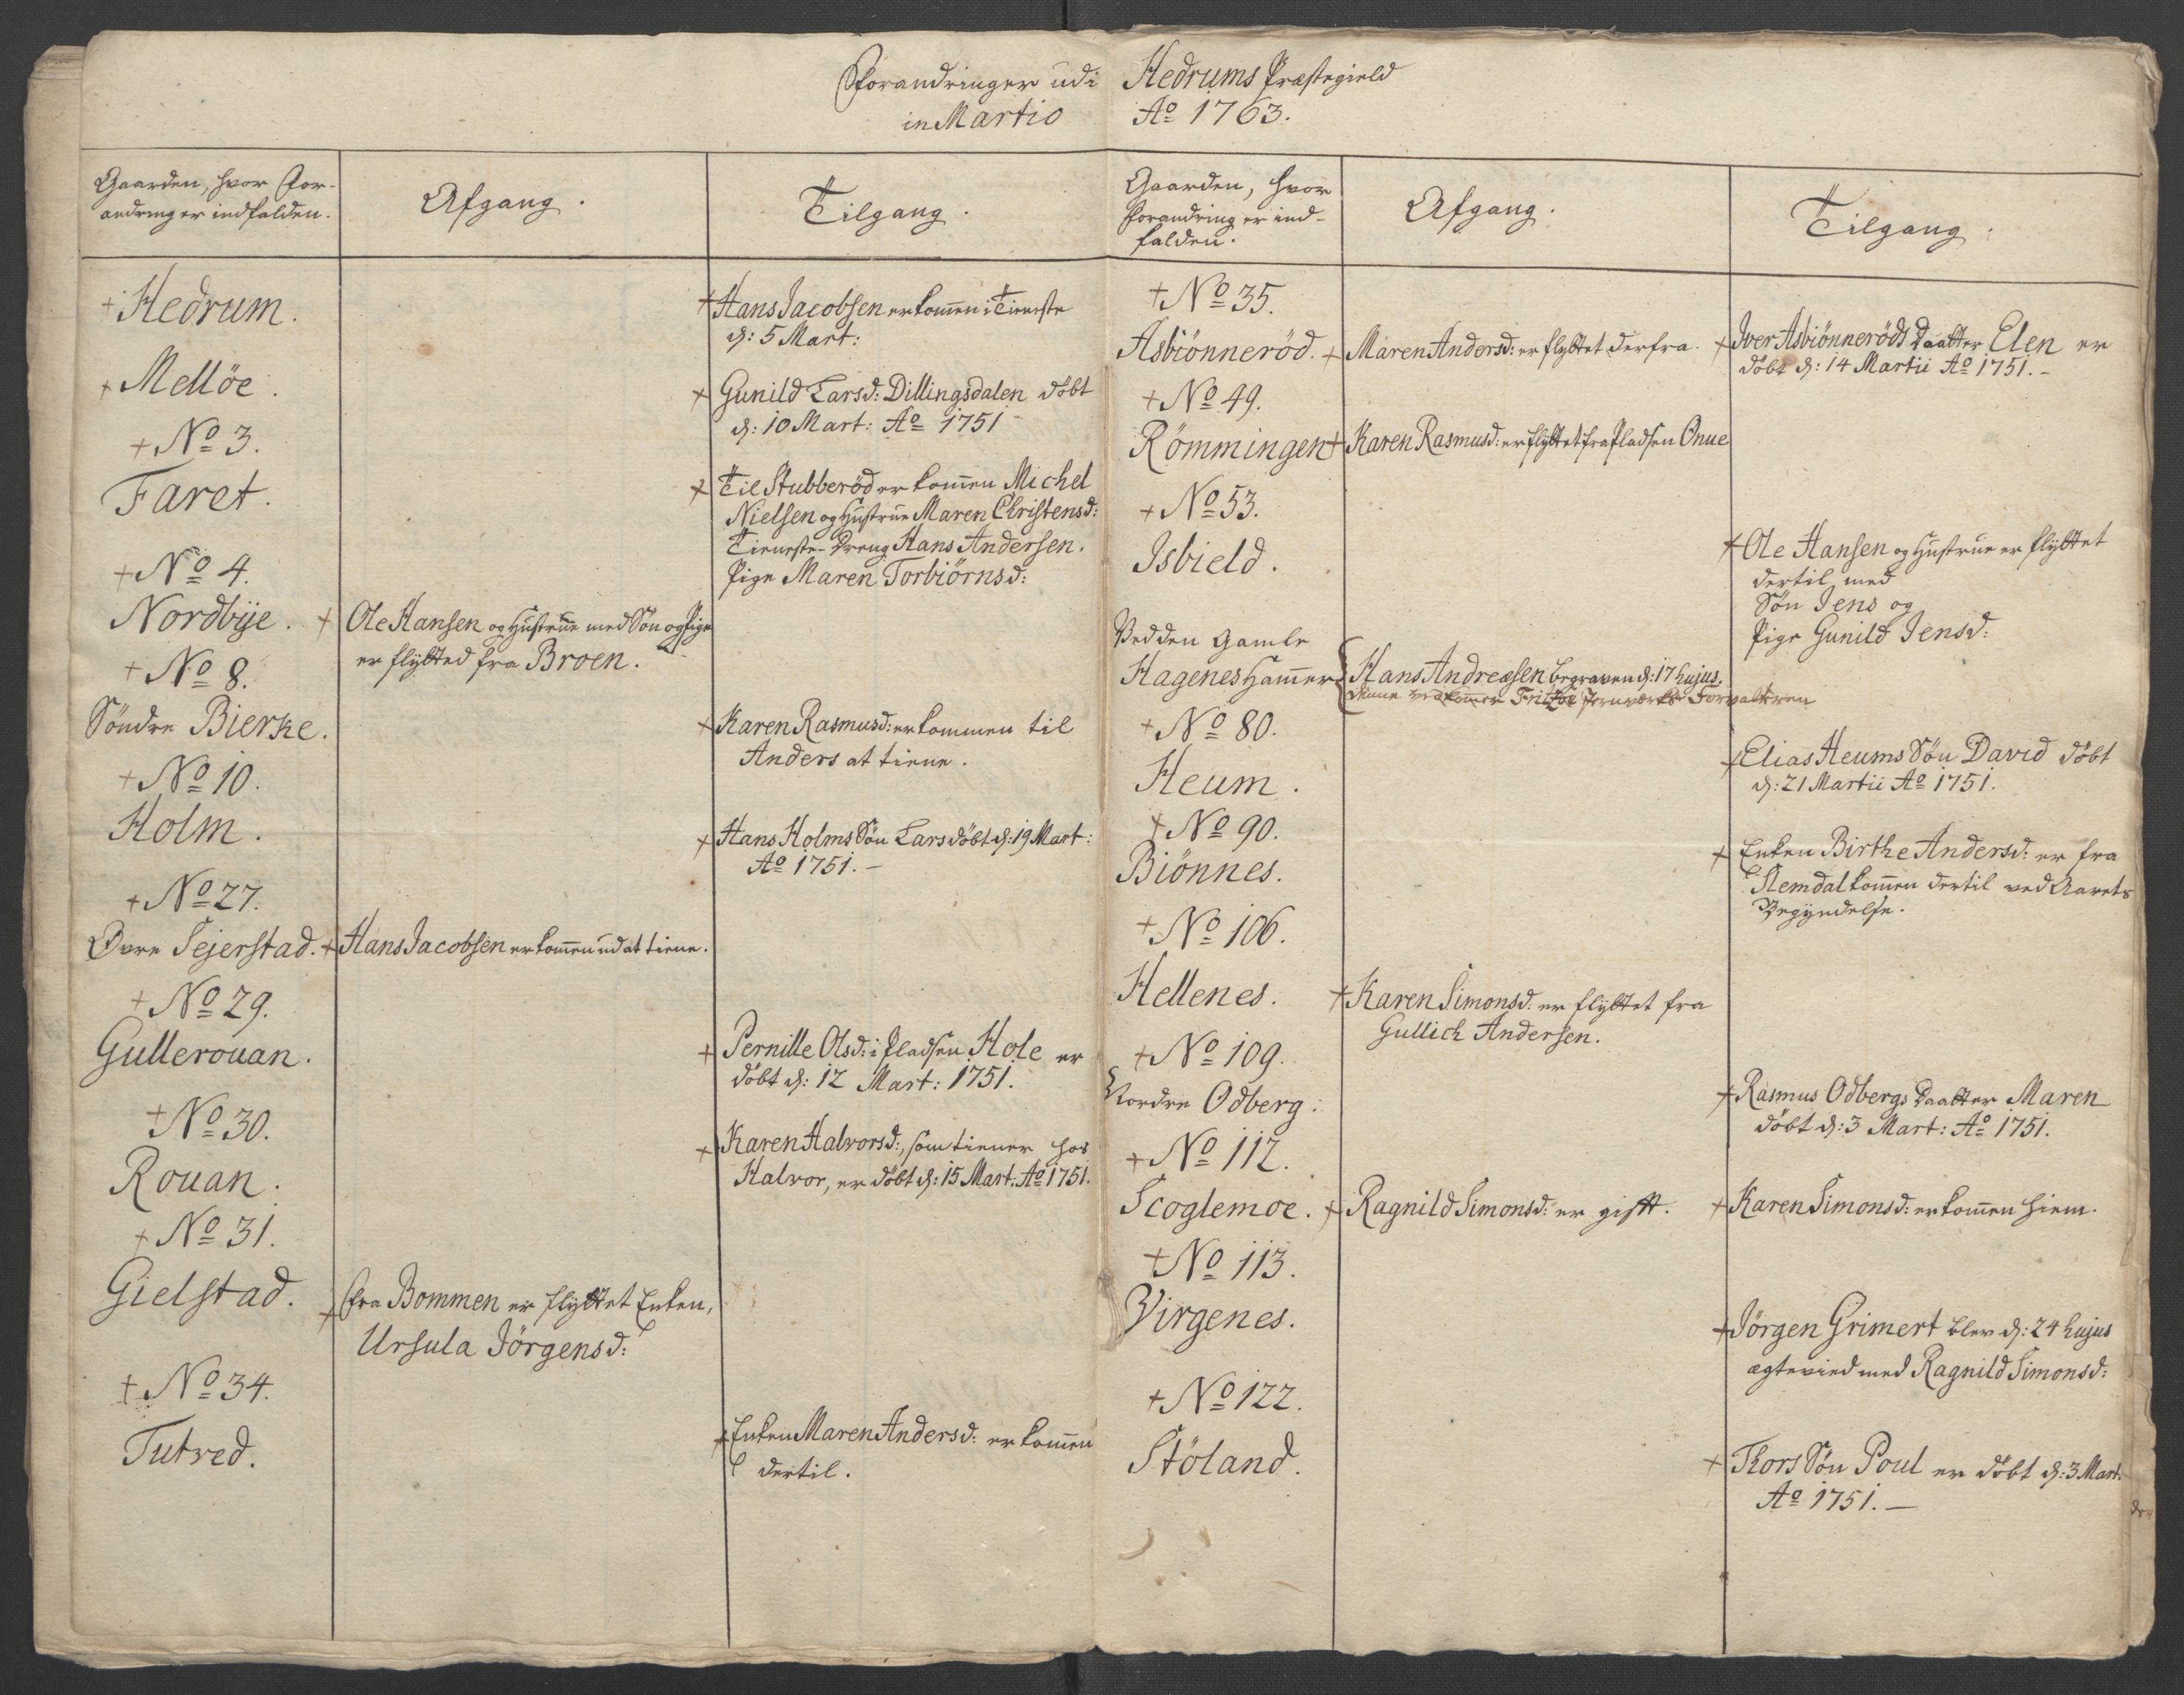 Forandringer udi Hedrums Præstegield
in Martio Ao 1763.
Gaarden, hvor For-
andring er indfalden.
Afgang.
Tilgang.
+ Hedrum.
+ Hans Jacobsen er kommen i Tieneste
d: 5 Mart:
+ Melløe.
+ Gunild Larsd: Dillingsdalen døbt
d: 10 Mart: Ao 1751
+ No 3.
Faret.
+ Til Stubberød er kommen Michel
Nielsen og Hustrue Maren Christensd:
Tieneste-Dreng Hans Andersen.
Pige Maren Torbiörnsd:
+ No 4.
Nordbÿe.
+ Ole Hansen og Hustrue med Søn og Pige
er flÿtted fra Broen.
+ No 8.
Søndre Bierke.
+ Karen Rasmusd: er kommen til
Anders at tiene.
+ No 10.
Holm.
+ Hans Holms Søn Lars døbt d: 19 Mart:
Ao 1751. -
+ No 27.
Øvre Sejerstad.
+ Hans Jacobsen er kommen ud at tiene.
+ No 29.
Gullerouan.
+ Pernille Olsd: i Pladsen Hole er
døbt d: 12 Mart: 1751.
+ No 30.
Rouan.
+ Karen Halvorsd:, som tiener hos
Halvor, er døbt d: 15 Mart: Ao 1751.
+ No 31.
Gielstad.
+ Fra Bommen er flÿttet Enken,
Ursula Jörgensd:
+ No 34.
Tutved.
+ Enken Maren Andersd: er kommen
dertil.
Gaarden, hvor
Forandring er ind-
falden.
Afgang.
Tilgang.
+ No 35.
Asbiönneröd.
+ Maren Andersd: er flÿttet derfra.
+ Iver Asbiönneröds Daatter Elen er
døbt d: 14 Martii Ao 1751. -
+ No 49.
Römmingen
+ Karen Rasmusd: er flÿttet fra Pladsen Onue
+ No 53.
Isbield.
+ Ole Hansen og Hustrue er flÿttet
dertil med
Søn Jens og
Pige Gunild Jensd:
Ved den Gamle
Hagenes Hammer
Hans Andreasen begraven d: 17 hujus.
Denne vedkommer Fritzøe Jernverks Forvalteren
+ No 80.
Heum.
+ Elias Heums Søn David døbt
d: 21 Martii Ao 1751.
+ No 90.
Biönnes.
+ Enken Birthe Andersd: er fra
Slemdal kommen dertil ved Aarets
Begÿndelse.
+ No 106.
Hellenes.
+ Karen Simonsd: er flÿttet fra
Gullich Andersen.
+ No 109.
Nordre Odberg:
+ Rasmus Odbergs Daatter Maren
døbt d: 3 Mart: Ao 1751.
+ No 112.
Scoglemoe.
+ Ragnild Simonsd: er gift.
+ Karen Simonsd: er kommen hiem.
+ No 113.
Virgenes.
+ Jörgen Grimert blev d: 24 hujus
ægtevied med Ragnild Simonsd:
+ No 122.
Stöland.
+ Thors Søn Poul er døbt d: 3 Mart:
Ao 1751. -